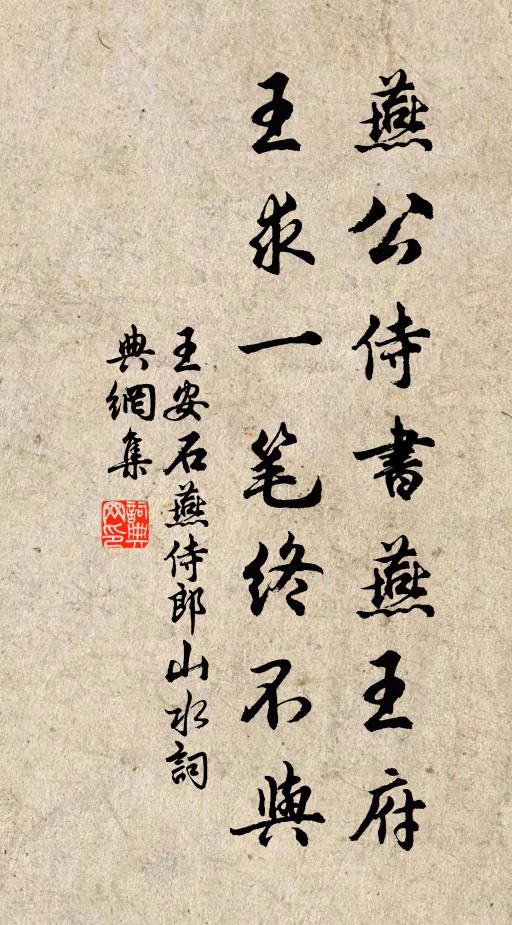 燕公侍書燕王府
王求一笔終不與
王安石燕侍郎山水詞
典網集
詞典網印